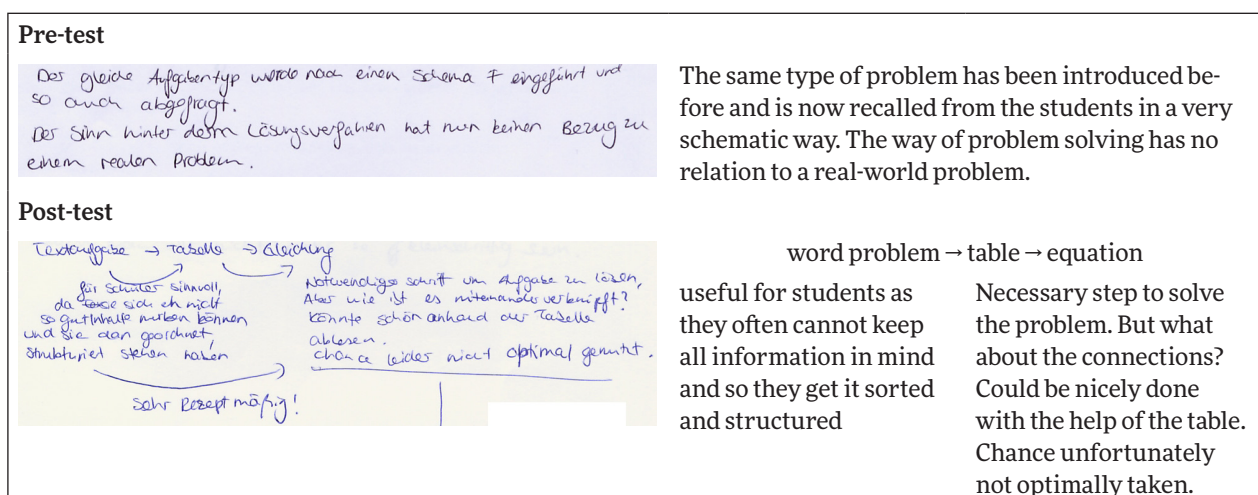 Pre-test
Der gleiche Aufgabentyp werde nach einem Schema F eingeführt und
so auch abgefragt.
Der Sinn hinter dem Lösungsverfahren hat nun keinen Bezug zu
einem realen Problem.
The same type of problem has been introduced be-
fore and is now recalled from the students in a very
schematic way. The way of problem solving has no
relation to a real-world problem.
Post-test
Textaufgabe → Tabelle → Gleichung
für Schüler sinnvoll,
da sie sich eh nicht
so gut Inhalte merken können
und sie dan geordnet,
strukturiet stehen haben
Notwendige schritt um Aufgabe zu lösen,
Aber wie ist es miteinander verknüpft?
könnte schön anhand der Tabelle
ablesen.
chance leider nicht optimal genutzt.
Sehr Rezeptmäßig!
word problem → table → equation
useful for students as
they often cannot keep
all information in mind
and so they get it sorted
and structured
Necessary step to solve
the problem. But what
about the connections?
Could be nicely done
with the help of the table.
Chance unfortunately
not optimally taken.